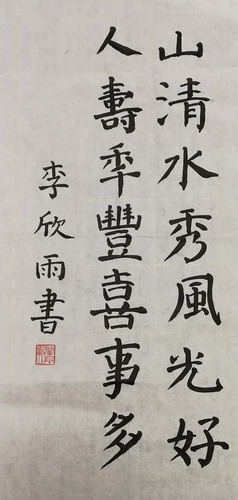 山清水秀風光好
人壽年豐喜事多
李欣雨書